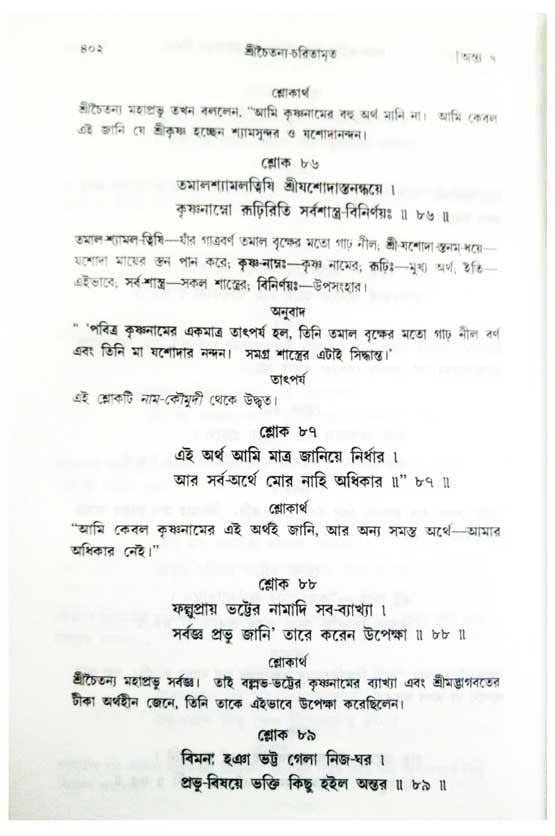 ৪০২ শ্রীচৈতন্য-চরিতামৃত [অন্ত্য ৭
শ্লোকার্থ
শ্রীচৈতন্য মহাপ্রভু তখন বললেন, “আমি কৃষ্ণনামের বহু অর্থ মানি না। আমি কেবল
এই জানি যে শ্রীকৃষ্ণ হচ্ছেন শ্যামসুন্দর ও যশোদানন্দন।
শ্লোক ৮৬
তমালশ্যামলত্বিষি শ্রীযশোদাস্তনন্ধয়ে ।
কৃষ্ণনাম্নো রূঢ়িরিতি সর্বশাস্ত্র-বিনির্ণয়ঃ ॥ ৮৬ ॥
তমাল-শ্যামল-ত্বিষি—যাঁর গাত্রবর্ণ তমাল বৃক্ষের মতো গাঢ় নীল; শ্রী-যশোদা-স্তনম-ধয়ে—
যশোদা মায়ের স্তন পান করে; কৃষ্ণ-নাম্নঃ—কৃষ্ণ নামের; রূঢ়িঃ—মুখ্য অর্থ, ইতি—
এইভাবে; সর্ব-শাস্ত্র—সকল শাস্ত্রের; বিনির্ণয়ঃ—উপসংহার।
অনুবাদ
“ ‘পবিত্র কৃষ্ণনামের একমাত্র তাৎপর্য হল, তিনি তমাল বৃক্ষের মতো গাঢ় নীল বর্ণ
এবং তিনি মা যশোদার নন্দন। সমগ্র শাস্ত্রের এটাই সিদ্ধান্ত।’
তাৎপর্য
এই শ্লোকটি নাম-কৌমুদী থেকে উদ্ধৃত।
শ্লোক ৮৭
এই অর্থ আমি মাত্র জানিয়ে নির্ধার ।
আর সর্ব-অর্থে মোর নাহি অধিকার ॥” ৮৭ ॥
শ্লোকার্থ
“আমি কেবল কৃষ্ণনামের এই অর্থই জানি, আর অন্য সমস্ত অর্থে—আমার
অধিকার নেই।”
শ্লোক ৮৮
ফল্গুপ্রায় ভট্টের নামাদি সব-ব্যাখ্যা ।
সর্বজ্ঞ প্রভু জানি’ তারে করেন উপেক্ষা ॥ ৮৮ ॥
শ্লোকার্থ
শ্রীচৈতন্য মহাপ্রভু সর্বজ্ঞ। তাই বল্লভ-ভট্টের কৃষ্ণনামের ব্যাখ্যা এবং শ্রীমদ্ভাগবতের
টীকা অর্থহীন জেনে, তিনি তাকে এইভাবে উপেক্ষা করেছিলেন।
শ্লোক ৮৯
বিমনা হঞা ভট্ট গেলা নিজ-ঘর ।
প্রভু-বিষয়ে ভক্তি কিছু হইল অন্তর ॥ ৮৯ ॥